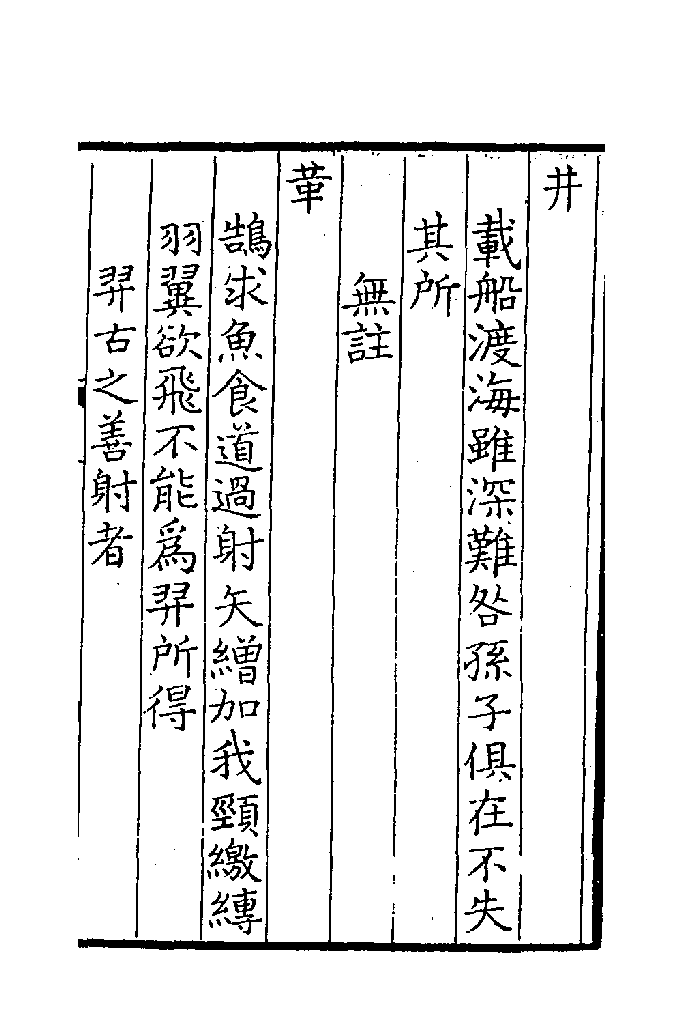 井
載船渡海雖深難咎孫子俱在不失
其所
無註
革
鵠求魚食道過射矢繒加我頸繳縳
羽翼欲飛不能爲羿所得
羿古之善射者